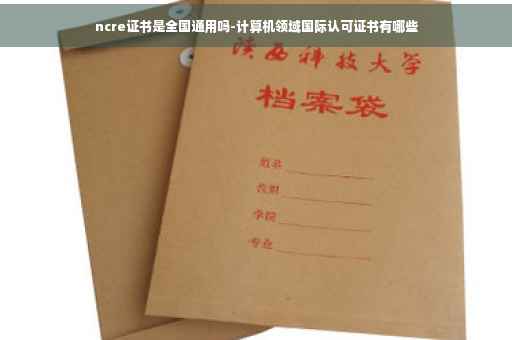 ncre证书是全国通用吗-计算机领域国际认可证书有哪些
陕西科技大学
档案袋
姓名
学院
专业